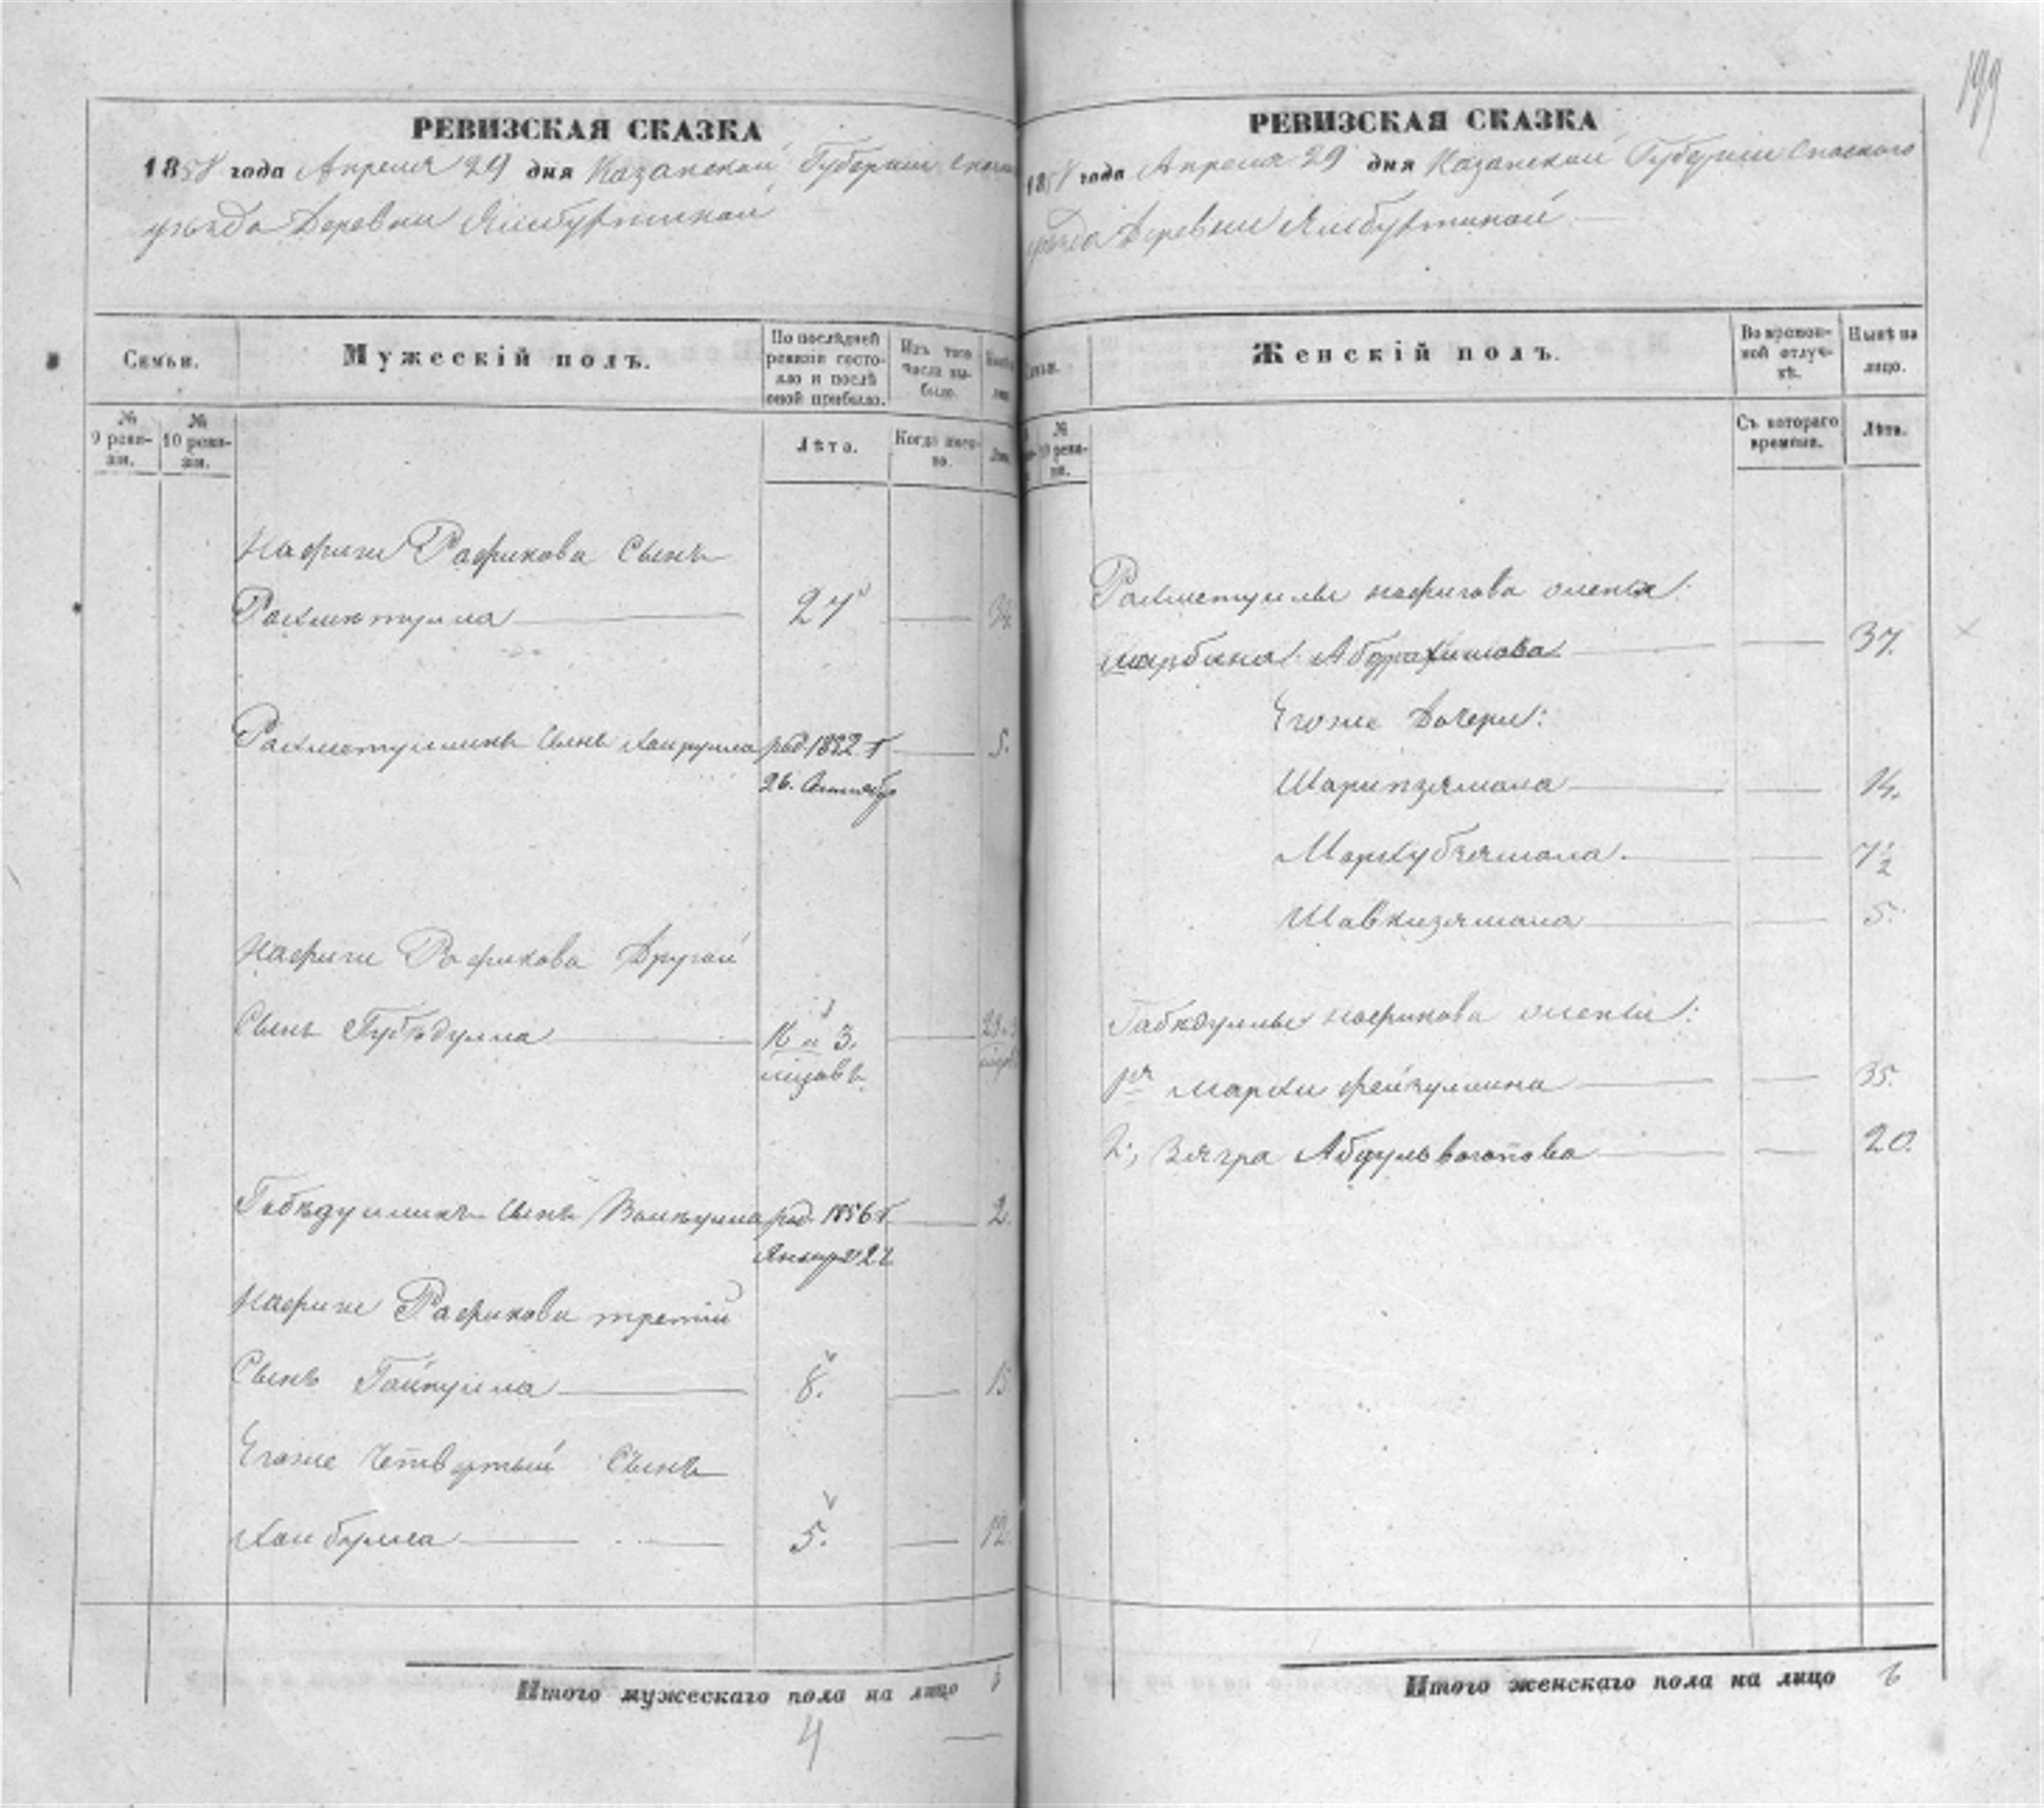 199
РЕВИЗСКАЯ СКАЗКА
1858 года Апреля 29 дня Казанской Губернiи
уѣзда Деревни Ямбухтиной
Семьи.
Мужескiй полъ.
По послѣдней ревизiи состояло и послѣ оной прибыло.
Изъ того числа выбыло.
№ 9 ревизiи.
№ 10 ревизiи.
Лѣта.
Когда именно.
Нафиги Рафикова Сынъ
Рахметулла 27
Рахметуллинъ сынъ Хайрулла род. 1852 г. 5.
26. Сентябр
Нафиги Рафикова Другой
Сынъ Губѣдулла 16 и 3.
мѣсяцовъ
Габѣдуллинъ сынъ Валиулла род. 1856 г. 2.
Января 22
Нафиги Рафикова третiй
Сынъ Гайнулла 8. 15
Егоже четвертый Сынъ
Хайбулла 5. 12
Итого мужескаго пола на лицо 6
4
РЕВИЗСКАЯ СКАЗКА
1858 года Апреля 29 дня Казанской Губернiи Спаского
уѣзда Деревни Ямбухтиной
Женскiй полъ.
Во временной отлучкѣ.
Нынѣ на лицо.
№ 10 ревизiи.
Съ котораго времени.
Лѣта.
Рахметуллы Нафигова жена:
Абдрахимова 37.
Егоже Дочери:
Шарипзямала 14.
Махубзямала. 7½
Шавкизямала 5.
Габѣдуллы Нафикова жены:
1я Фейзуллина 35.
2, Зягра Абдулвагапова 20.
Итого женскаго пола на лицо 6